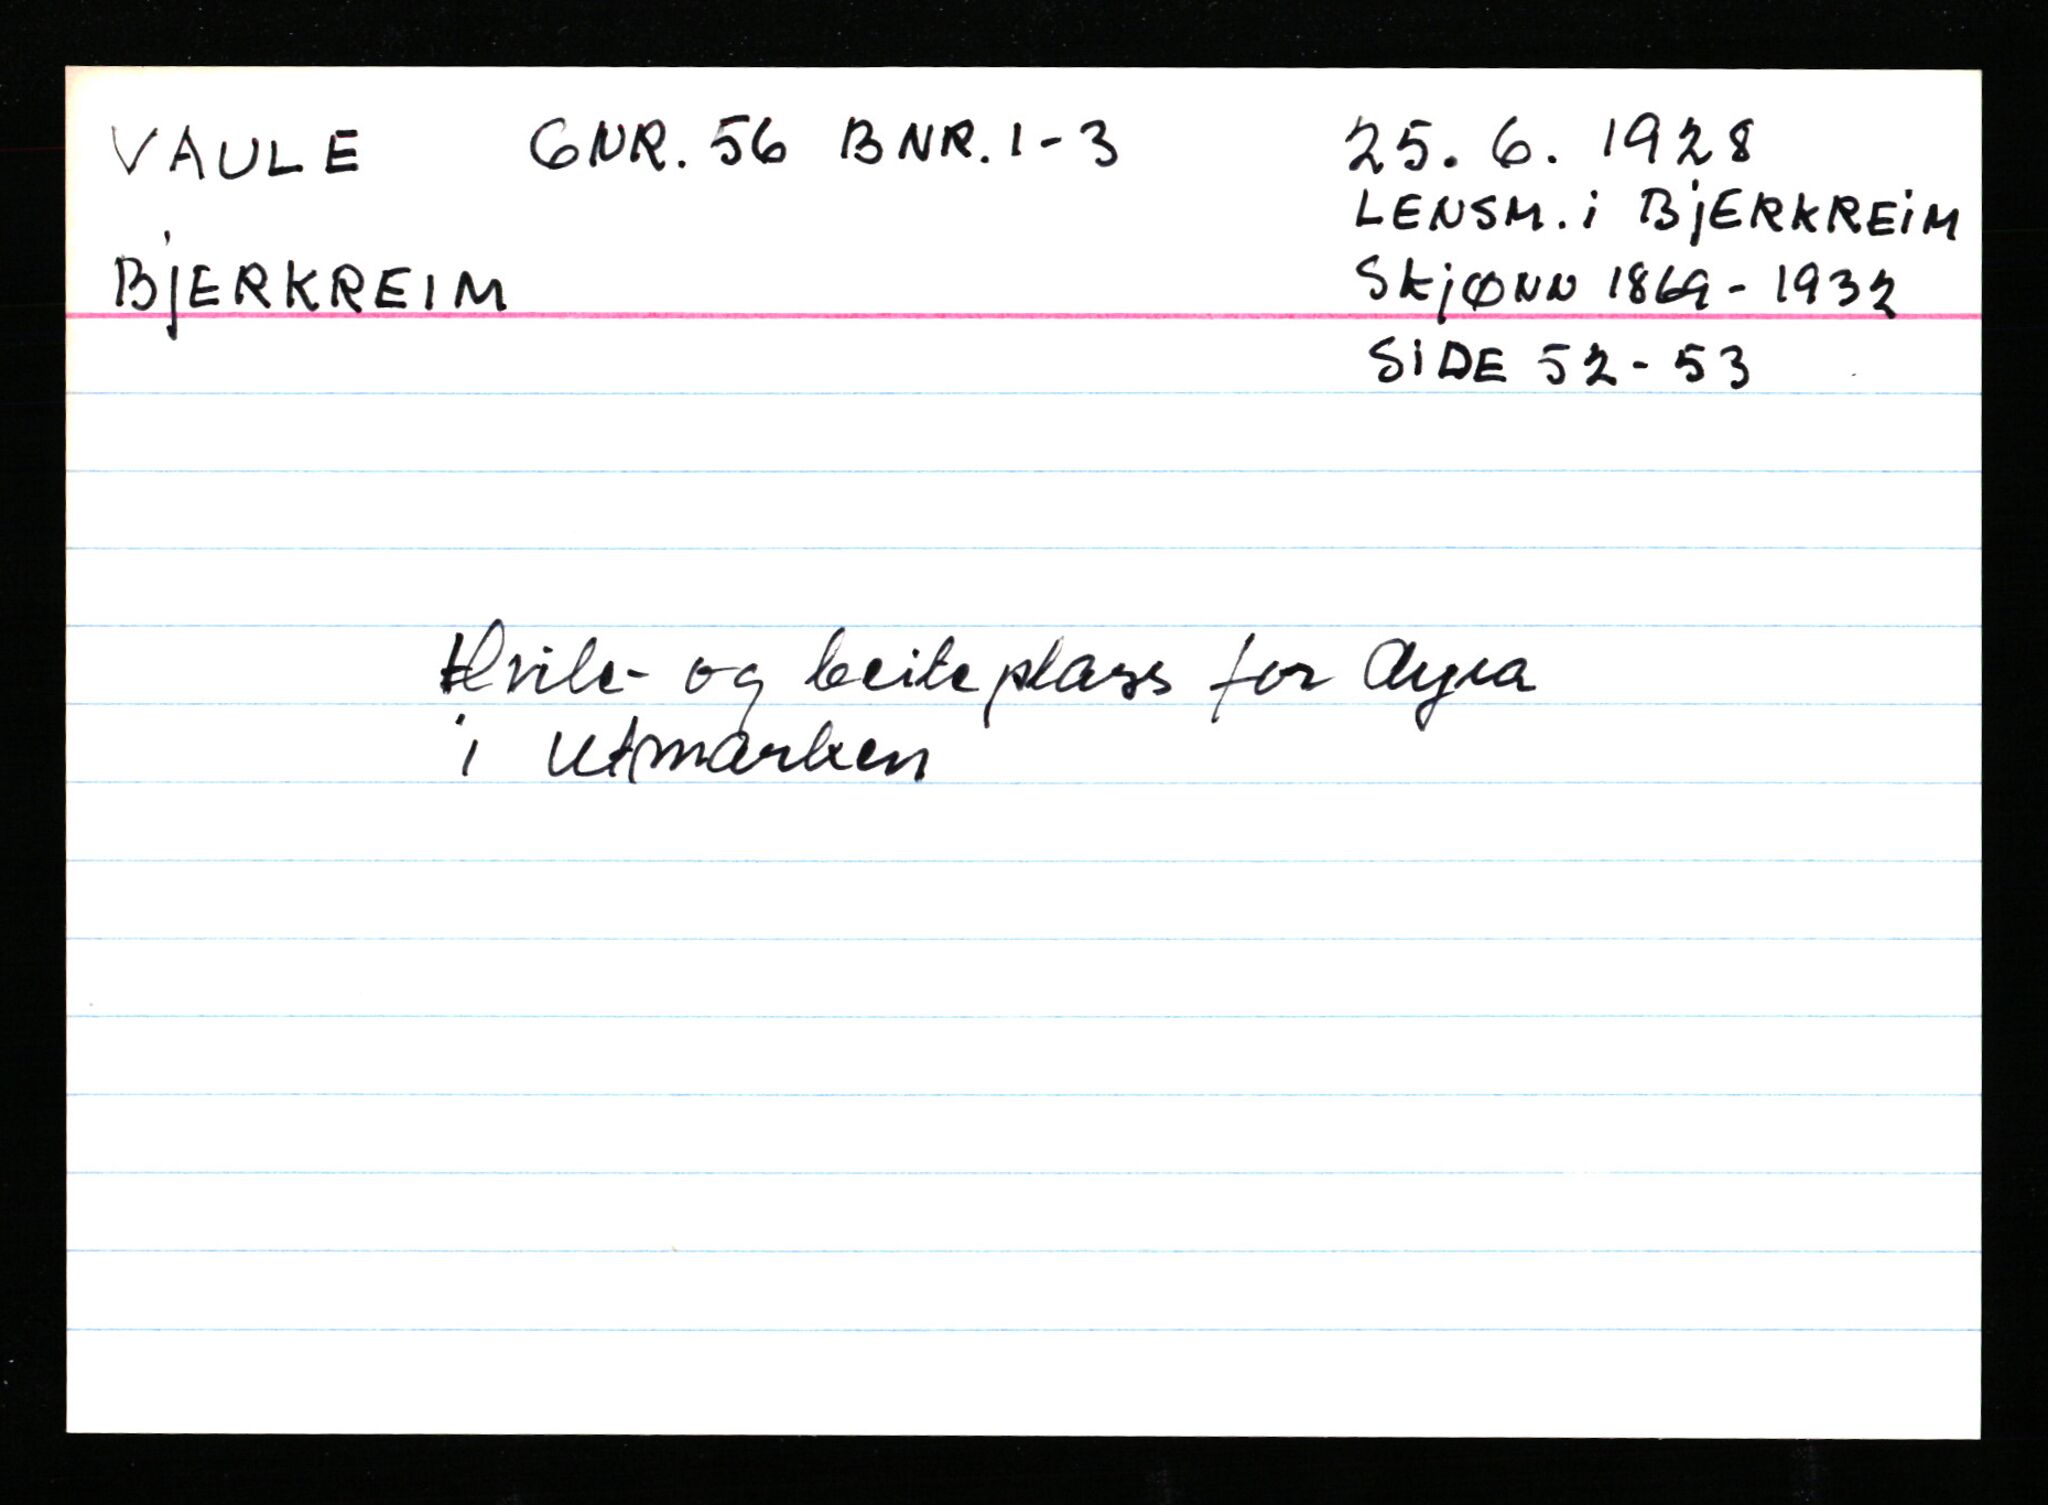 VAULE GNR. 56 BNR. 1-3 25. 6. 1928
LENSM. i BjERKREiM
BjERKREIM SkjØNN 1869-1932
SiDE 52-53
Hvile- og beiteplass for dyra
i utmarken